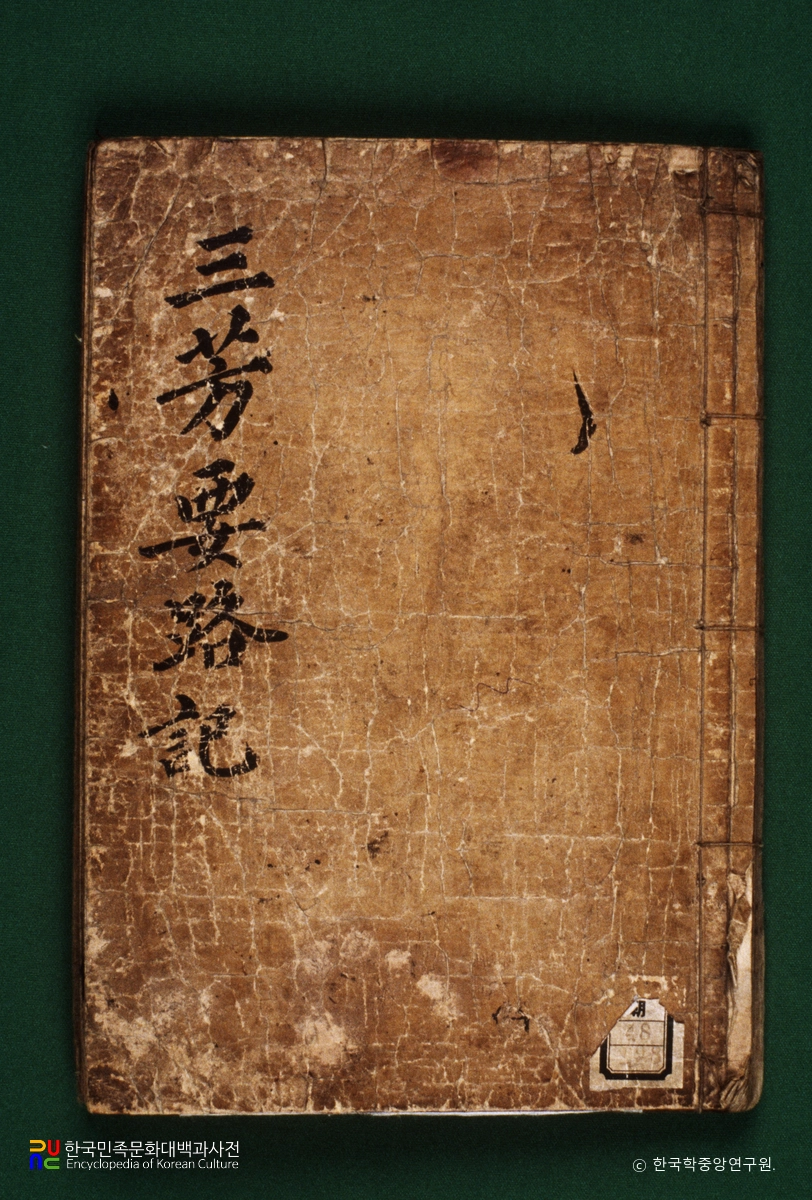 三芳要路記
朝
48
한국민족문화대백과사전
Encyclopedia of Korean Culture
ⓒ 한국학중앙연구원.